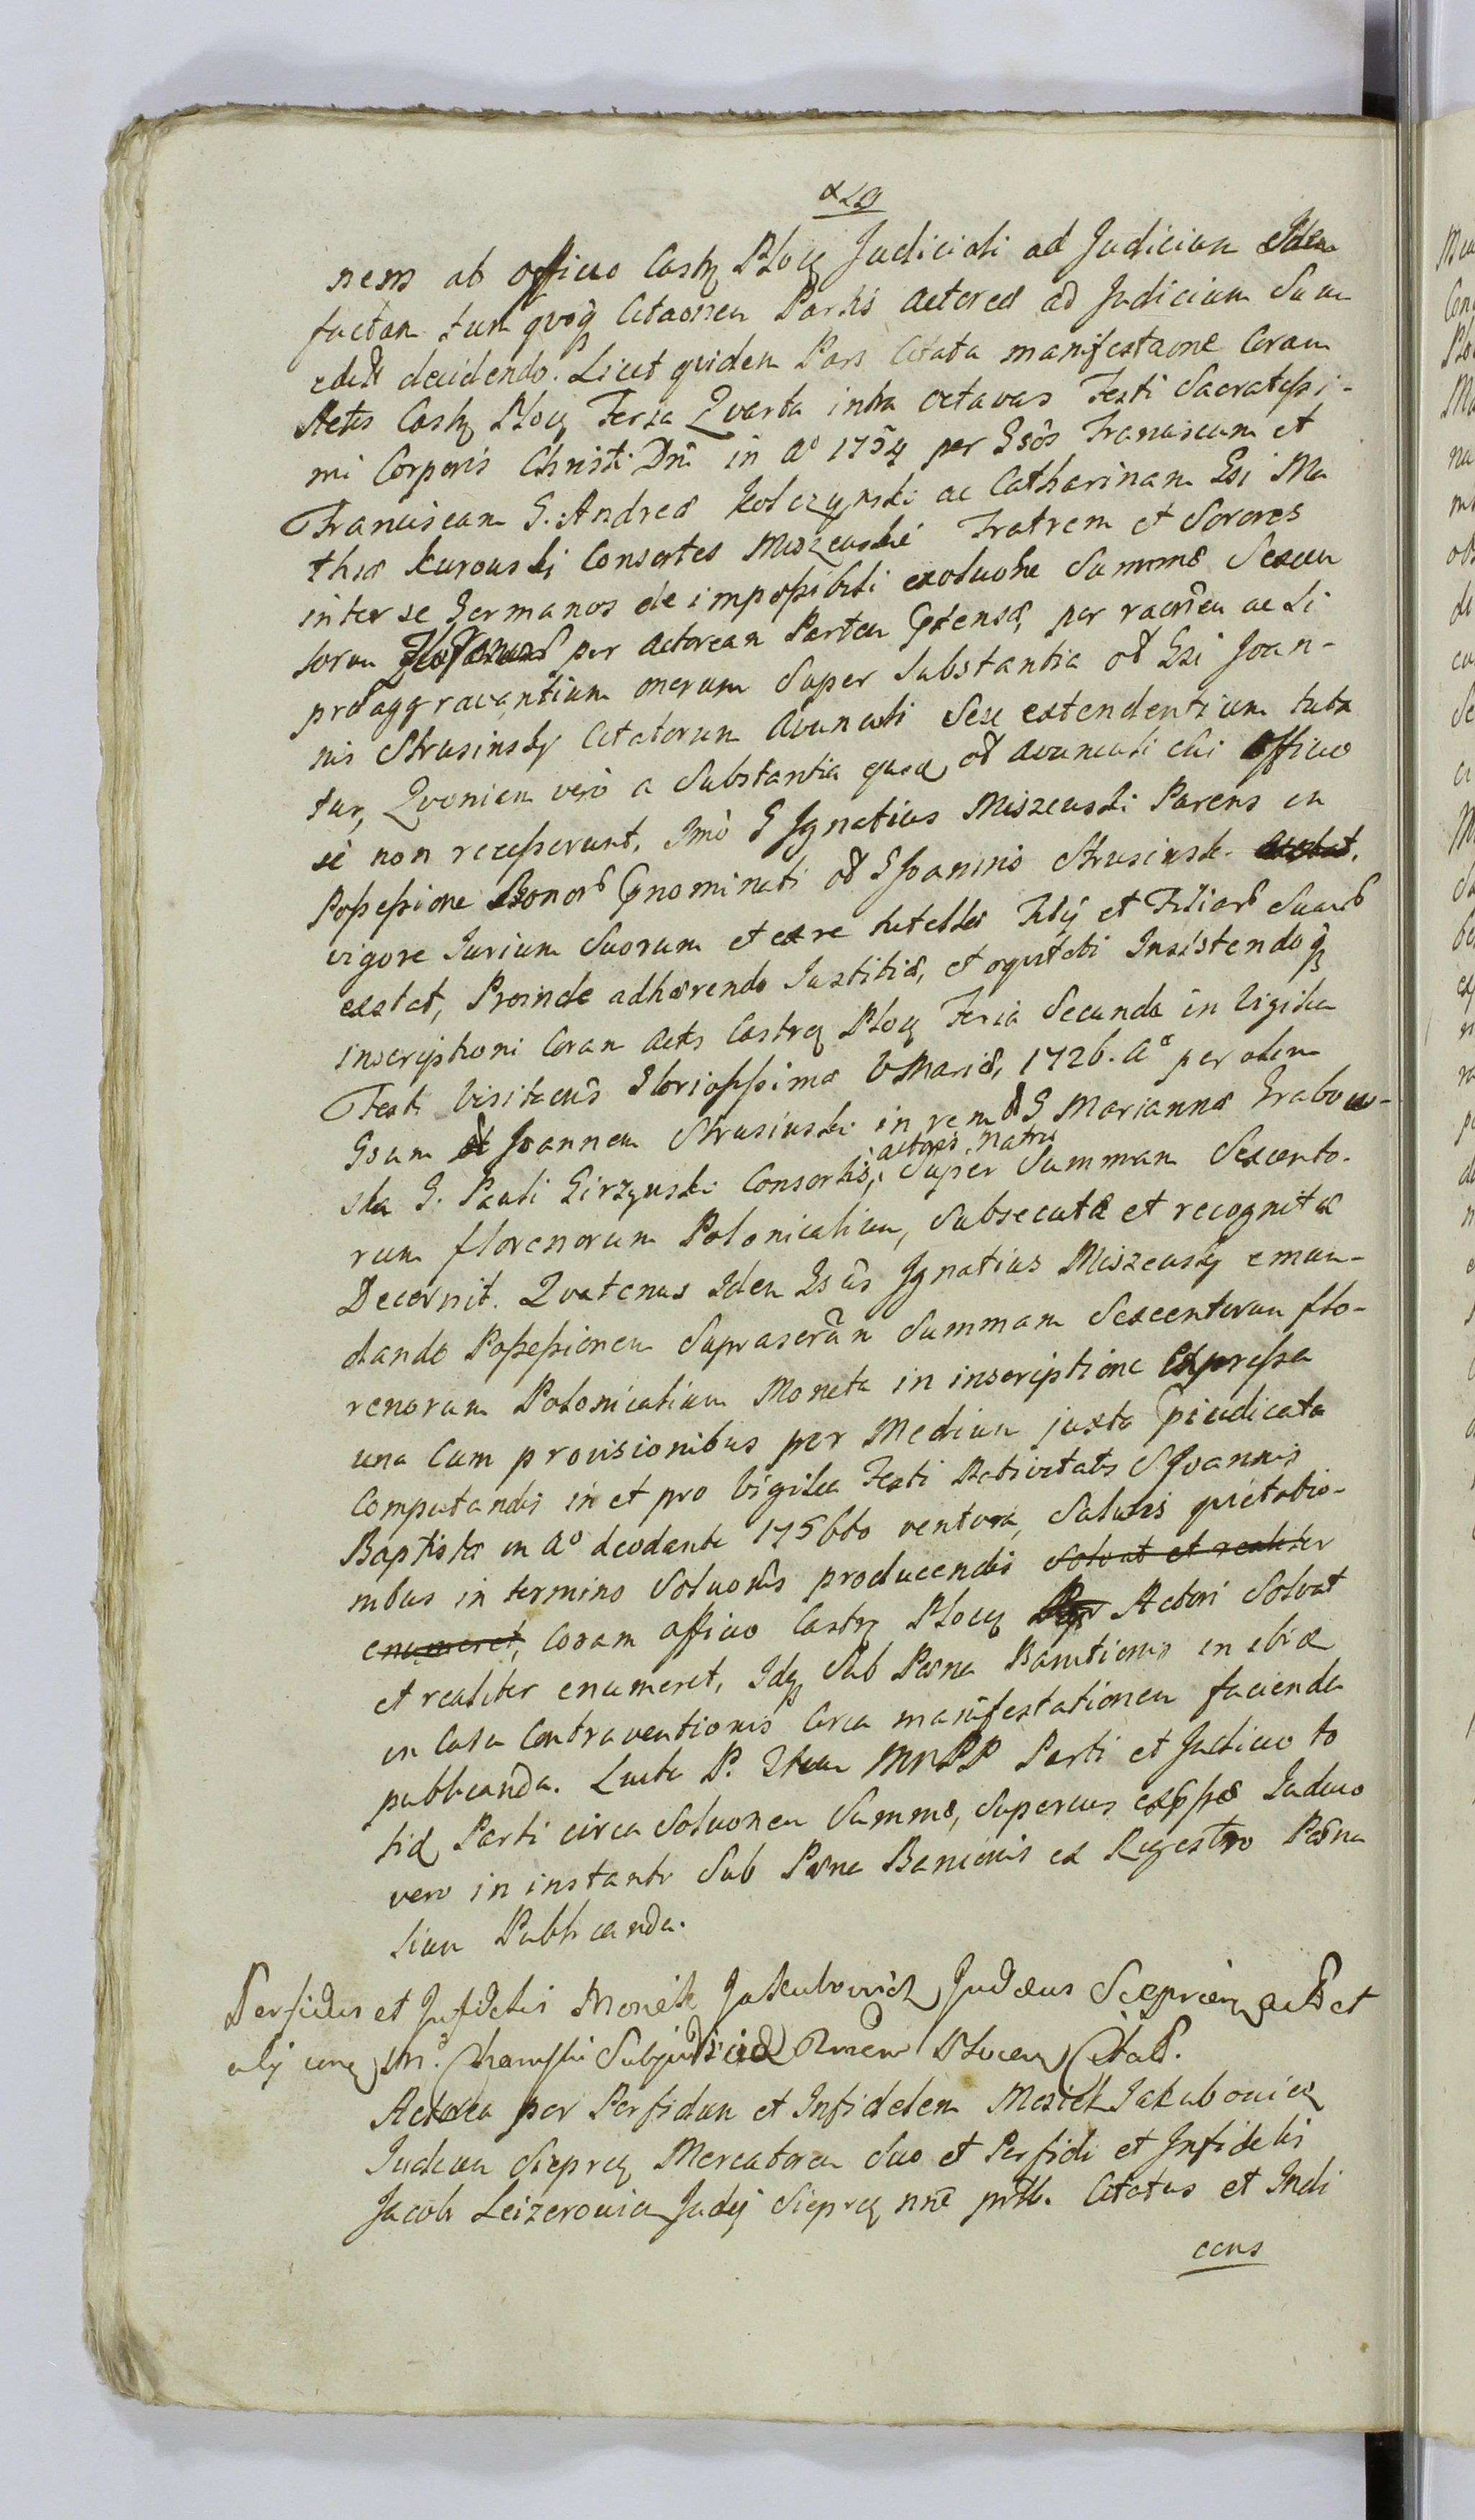 nem ab officio Castr Ploc Judiciali ad Judicium
factam tum quoq Citaonem Partis Actoreæ ad Judicium Suum
decidendo. Licet quidem Pars Citata manifestaone Coram
Actis Castr Ploc Feria Quarta intra octavas Festi Sacratissi-
mi Corporis Christi Dni in Ao 1754 per Gsos Franciscum et
Franciscam G. Andreæ Kolczynski ac Catharinam Gsi Ma
thiæ Kurowski Consortes Miszewskie Fratrem et Sorores
inter se Germanos de impossibili exolutione Summæ Sexcen
torum per Actoream Partem prtensæ, per raonem ac Li
præaggravantium onerum Super Substantia od Gsi Joan-
nis Strusinsky Citatorum Avunculi Sese extendentium tuta
tur, Quoniam vero a Substantia od avunculi sui officio
se non recesserunt, Imo G Ignatius Miszewski Parens in
Possessione Bonor prnominati od G Joannis Strusinski
vigore Jurium Suorum et ex re tutellæ Filij et Filiar Suar
extat, Proinde adhærendo Justitiæ, et æquitati Insistendoq
inscriptioni Coram Actis Castren Ploc Feria Secunda in Vigilia
Festi Visitaonis Gloriosissimæ V Mariæ, 1726. Ao per olim
Gsum Joannem Strusinski in rem od G Mariannæ Grabow-
ska G. Pauli Girzynski Consortis, actoris matris Super Summam Sexcento-
rum florenorum Polonicalium, Subsecutæ et recognitæ
Decernit. Quatenus Idem Gsus Ignatius Miszewsky emun-
dando Possessionem Suprascran Summam Sexcentorum flo-
renorum Polonicalium Moneta in inscriptione Expressa
una Cum provisionibus per Medium juxta prjudicata
Computandis in et pro Vigilia Festi Nativitatis S Joannis
Baptistæ in Ao deodante 1756to ventura, Salvis quietatio-
nibus in termino Soluonis producendis solvat et realiter
enumeret, Coram Officio Castr Ploc Actori Solvat
et realiter enumeret, Idq Sub Pæna Banitionis in ibiæ
in Casu Contraventionis Circa manifestationem facienda
publicanda. Luita P. Item MNPP Parti et Judicio to
tid Parti circa Soluonem Summæ, Superius exprssæ Judicio
vero in instanti Sub Pæna Banionis ex Regestro Pæna
lium Publicanda.
Perfidus et Infidelis Mosiek Jakubowicz Judæus Sieprcen act et
alij
Actorea per Perfidum et Infidelem Mosiek Jakubowicz
Judæum Sieprcz Mercatorem Suo et Perfidi et Infidelis
Jacob Leizerowicz Judæj Sieprcz nne prtt. Citatus et Judi
cans